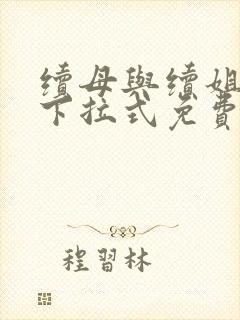 續母與續姐
下拉式免費
程習林